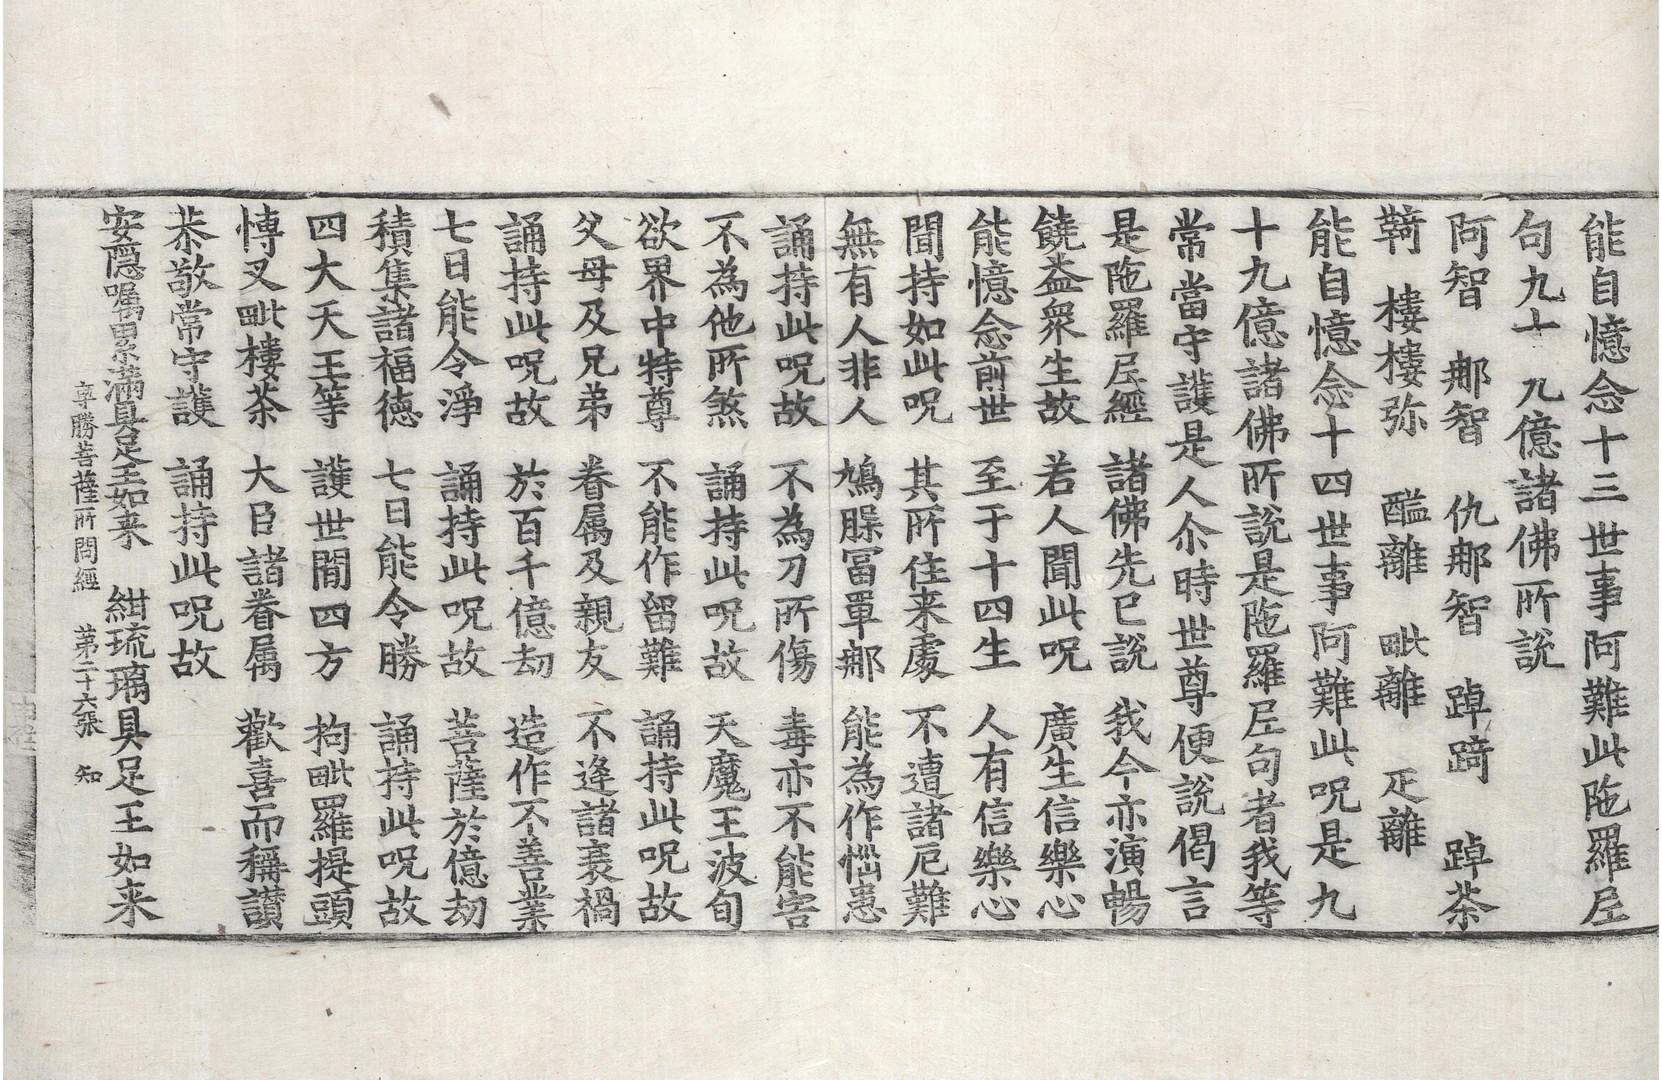 能自憶念十三世事阿難此陁羅𡰱
句九十九億諸佛所說
阿智 𨙻智 仇𨙻智 踔踦 踔荼
鞫 樓樓弥 醯離 毗離 疋離
能自憶念十四世事阿難此呪是九
十九億諸佛所說是陁羅𡰱句者我等
常當守護是人尒時世尊便說偈言
是陁羅𡰱經 諸佛先已說 我今亦演暢
饒益衆生故 若人聞此呪 廣生信樂心
能憶念前世 至于十四生 人有信樂心
聞持如此呪 其所住来處 不遭諸厄難
無有人非人 鳩冨單𨙻 能為作惱恚
誦持此呪故 不為刀所傷 毒亦不能害
不為他所煞 誦持此呪故 天魔王波旬
欲界中特尊 不能作留難 誦持此呪故
父母及兄弟 眷属及親友 不逢諸衰禍
誦持此呪故 於百千億劫 造作不善業
七日能令淨 誦持此呪故 菩薩於億劫
積集諸福德 七日能令勝 誦持此呪故
四大天王等 護世間四方 拘毗羅提頭
愽叉毗樓荼 大臣諸眷属 歡喜而稱讃
恭敬常守護 誦持此呪故
安隱嘱累滿具足王如来 紺琉璃具足王如来
尊勝菩薩所問經 苐二十六張 知